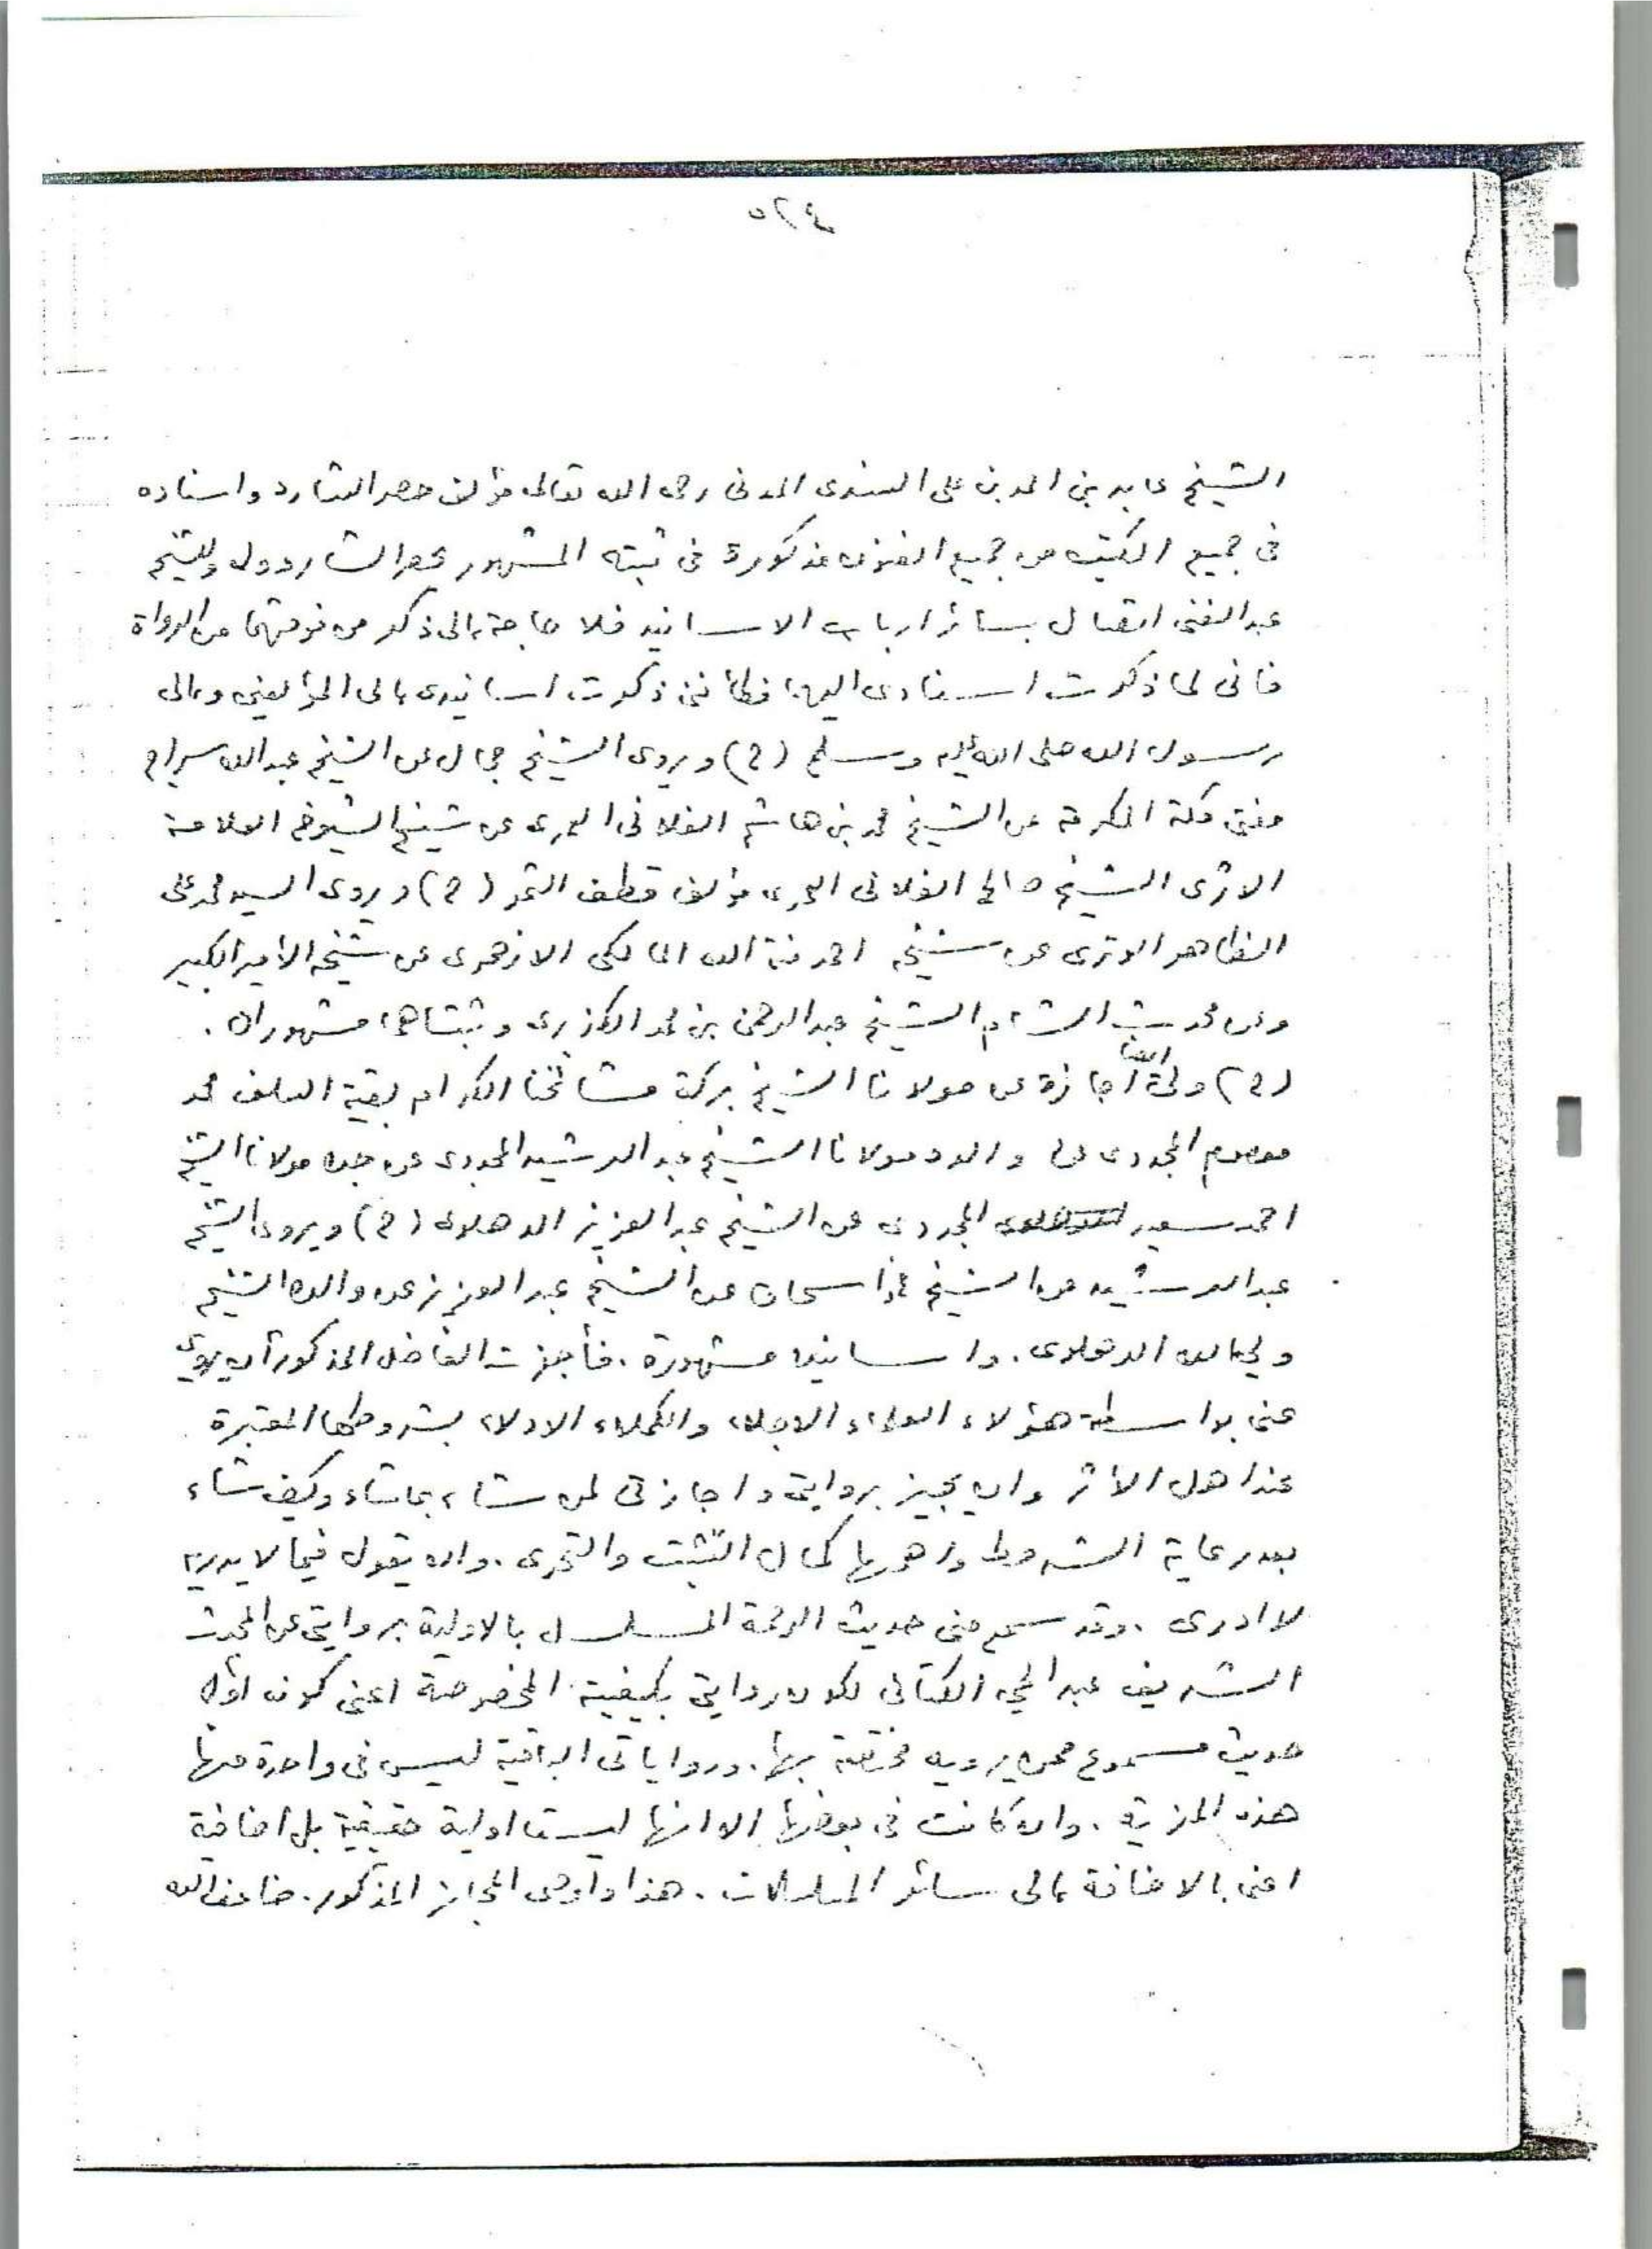 ٥٢٤
الشيخ عابد بن احمد بن على السندى المدنى رحمه الله تعالى مؤلف حصر الشارد واسناده
فى جميع الكتب من جميع الفنون مذكورة فى ثبته المشهور بحصر الشارد وله وللشيخ
عبد الغنى اتصال بسائر ارباب الاسانيد فلا حاجة الى ذكر من فوقهما من الرواة
فانى لما ذكرت اسنادى اليهما فكأننى ذكرت اسانيدى الى المؤلفين والى
رسول الله صلى الله عليه وسلم (ح) ويروى الشيخ جمال عن الشيخ عبد الله سراج
مفتى مكة المكرمة عن الشيخ محمد بن هاشم الفلانى العمرى عن شيخ الشيوخ العلامة
الاثرى الشيخ صالح الفلانى العمرى مؤلف قطف الثمر (ح) ويروى السيد محمد على
الظاهر الوترى عن شيخه احمد منة الله المالكى الازهرى عن شيخه الأمير الكبير
وعن محدث الشام الشيخ عبد الرحمن بن محمد الكزبرى وثبتاهما مشهوران .
(ح) ولى ايضا اجازة عن مولانا الشيخ بركة مشائخنا الكرام بقية السلف محمد
معصوم المجددى عن والده مولانا الشيخ عبد الرشيد المجددى عن جده مولانا الشيخ
احمد سعيد المجددى عن الشيخ عبد العزيز الدهلوى (ح) ويروى الشيخ
عبد الرشيد عن الشيخ اسحاق عن الشيخ عبد العزيز عن والده الشيخ
ولى الله الدهلوى . واسانيده مشهورة . فأجزت الفاضل المذكور أن يروى
عنى بواسطة هؤلاء العلماء الاجلاء والكملاء الادلاء بشروطها المعتبرة
عند اهل الأثر وان يجيز بروايتى واجازتى لمن شاء بما شاء وكيف شاء
بعد رعاية الشروط واهمها كمال التثبت والتحرى . وان يقول فيما لا يدريه
لا ادرى . وقد سمع منى حديث الرحمة المسلسل بالاولية بروايتى عن المحدث
الشريف عبد الحى الكتانى لكون روايتى بكيفيته المخصوصة اعنى كونه اول
حديث مسموع ممن يرويه مختصة بها . ورواياتى الباقية ليس فى واحدة منها
هذه المزية . وان كانت فى بعضها الا انها ليست اولية حقيقية بل اضافية
اعنى بالاضافة الى سائر المسلسلات . هذا واوصى المجاز المذكور . ضاعف الله